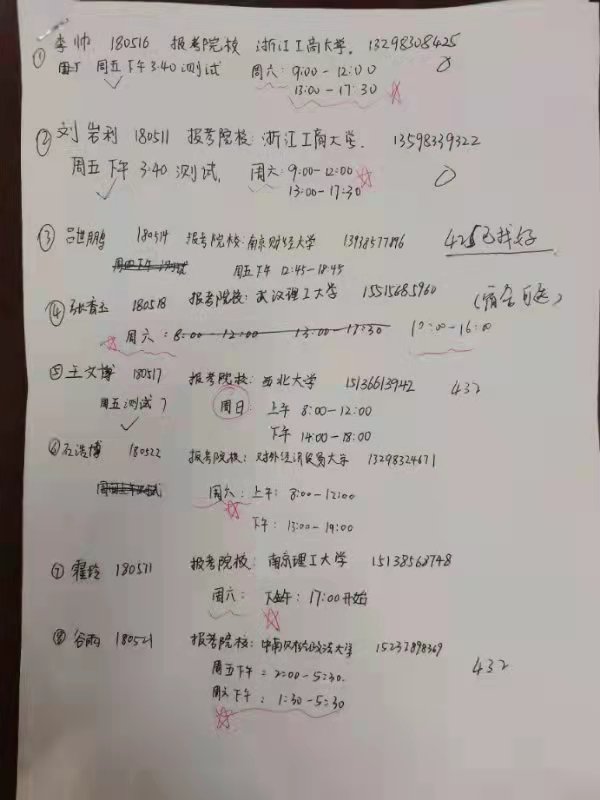 ① 李帅 180516 报考院校 浙江工商大学. 13298308425
周五下午3:40测试 周六: 9:00-12:00
13:00-17:30
② 刘岩利 180511 报考院校: 浙江工商大学. 13598339322
周五下午3:40测试. 周六: 9:00-12:00
13:00-17:30
③ 吕世鹏 180514 报考院校:南京财经大学 13938577896 425已找好
周五下午 12:45-18:45
④ 张 180518 报考院校: 武汉理工大学 15515685960 (宿舍可选)
周六: 8:00-12:00 13:00-17:30 10:00-16:00
⑤ 王文博 180517 报考院校: 西北大学 15136613942 432
周五测试? 周日: 上午 8:00-12:00
下午 14:00-18:00
⑥ 石浩博 180522 报考院校: 对外经济贸易大学 13298324671
周六: 上午: 8:00-12:00
下午: 13:00-19:00
⑦ 翟玲 180571 报考院校: 南京理工大学 15138568748
周六: 下午: 17:00开始
⑧ 谷雨 180521 报考院校: 中南财经政法大学 15237898369
周五下午: 2:00-5:30. 432
周六下午: 1:30-5:30